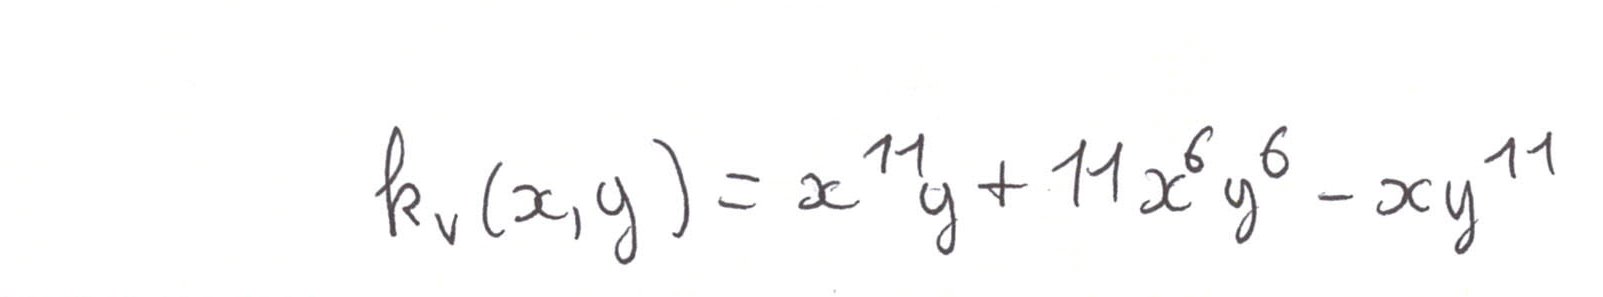 k_v(x,y) = x^{11}y + 11x^6y^6 - xy^{11}